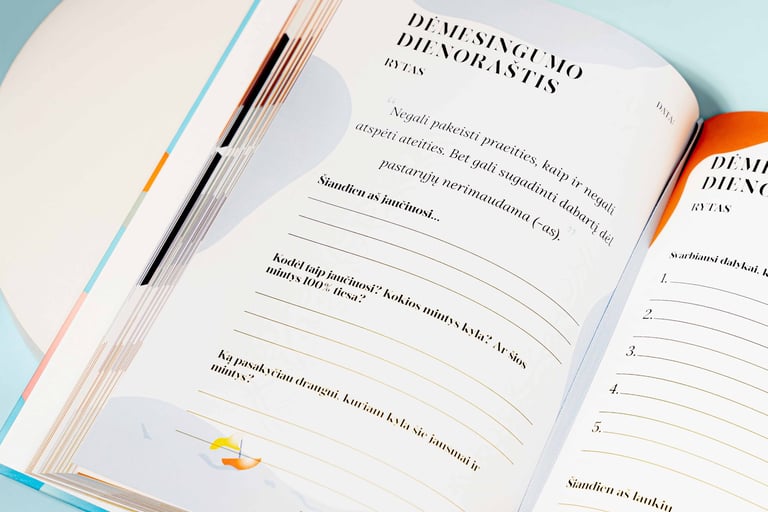 DĖMESINGUMO
DIENORAŠTIS
RYTAS
DATA:
“Negali pakeisti praeities, kaip ir negali
atspėti ateities. Bet gali sugadinti dabartį dėl
pastarųjų nerimaudama (-as).”
Šiandien aš jaučiuosi...
Kodėl taip jaučiuosi? Kokios mintys kyla? Ar šios
mintys 100% tiesa?
Ką pasakyčiau draugui, kuriam kyla šie jausmai ir
mintys?
RYTAS
Svarbiausi dalykai,
1.
2.
3.
4.
5.
Šiandien aš laukiu